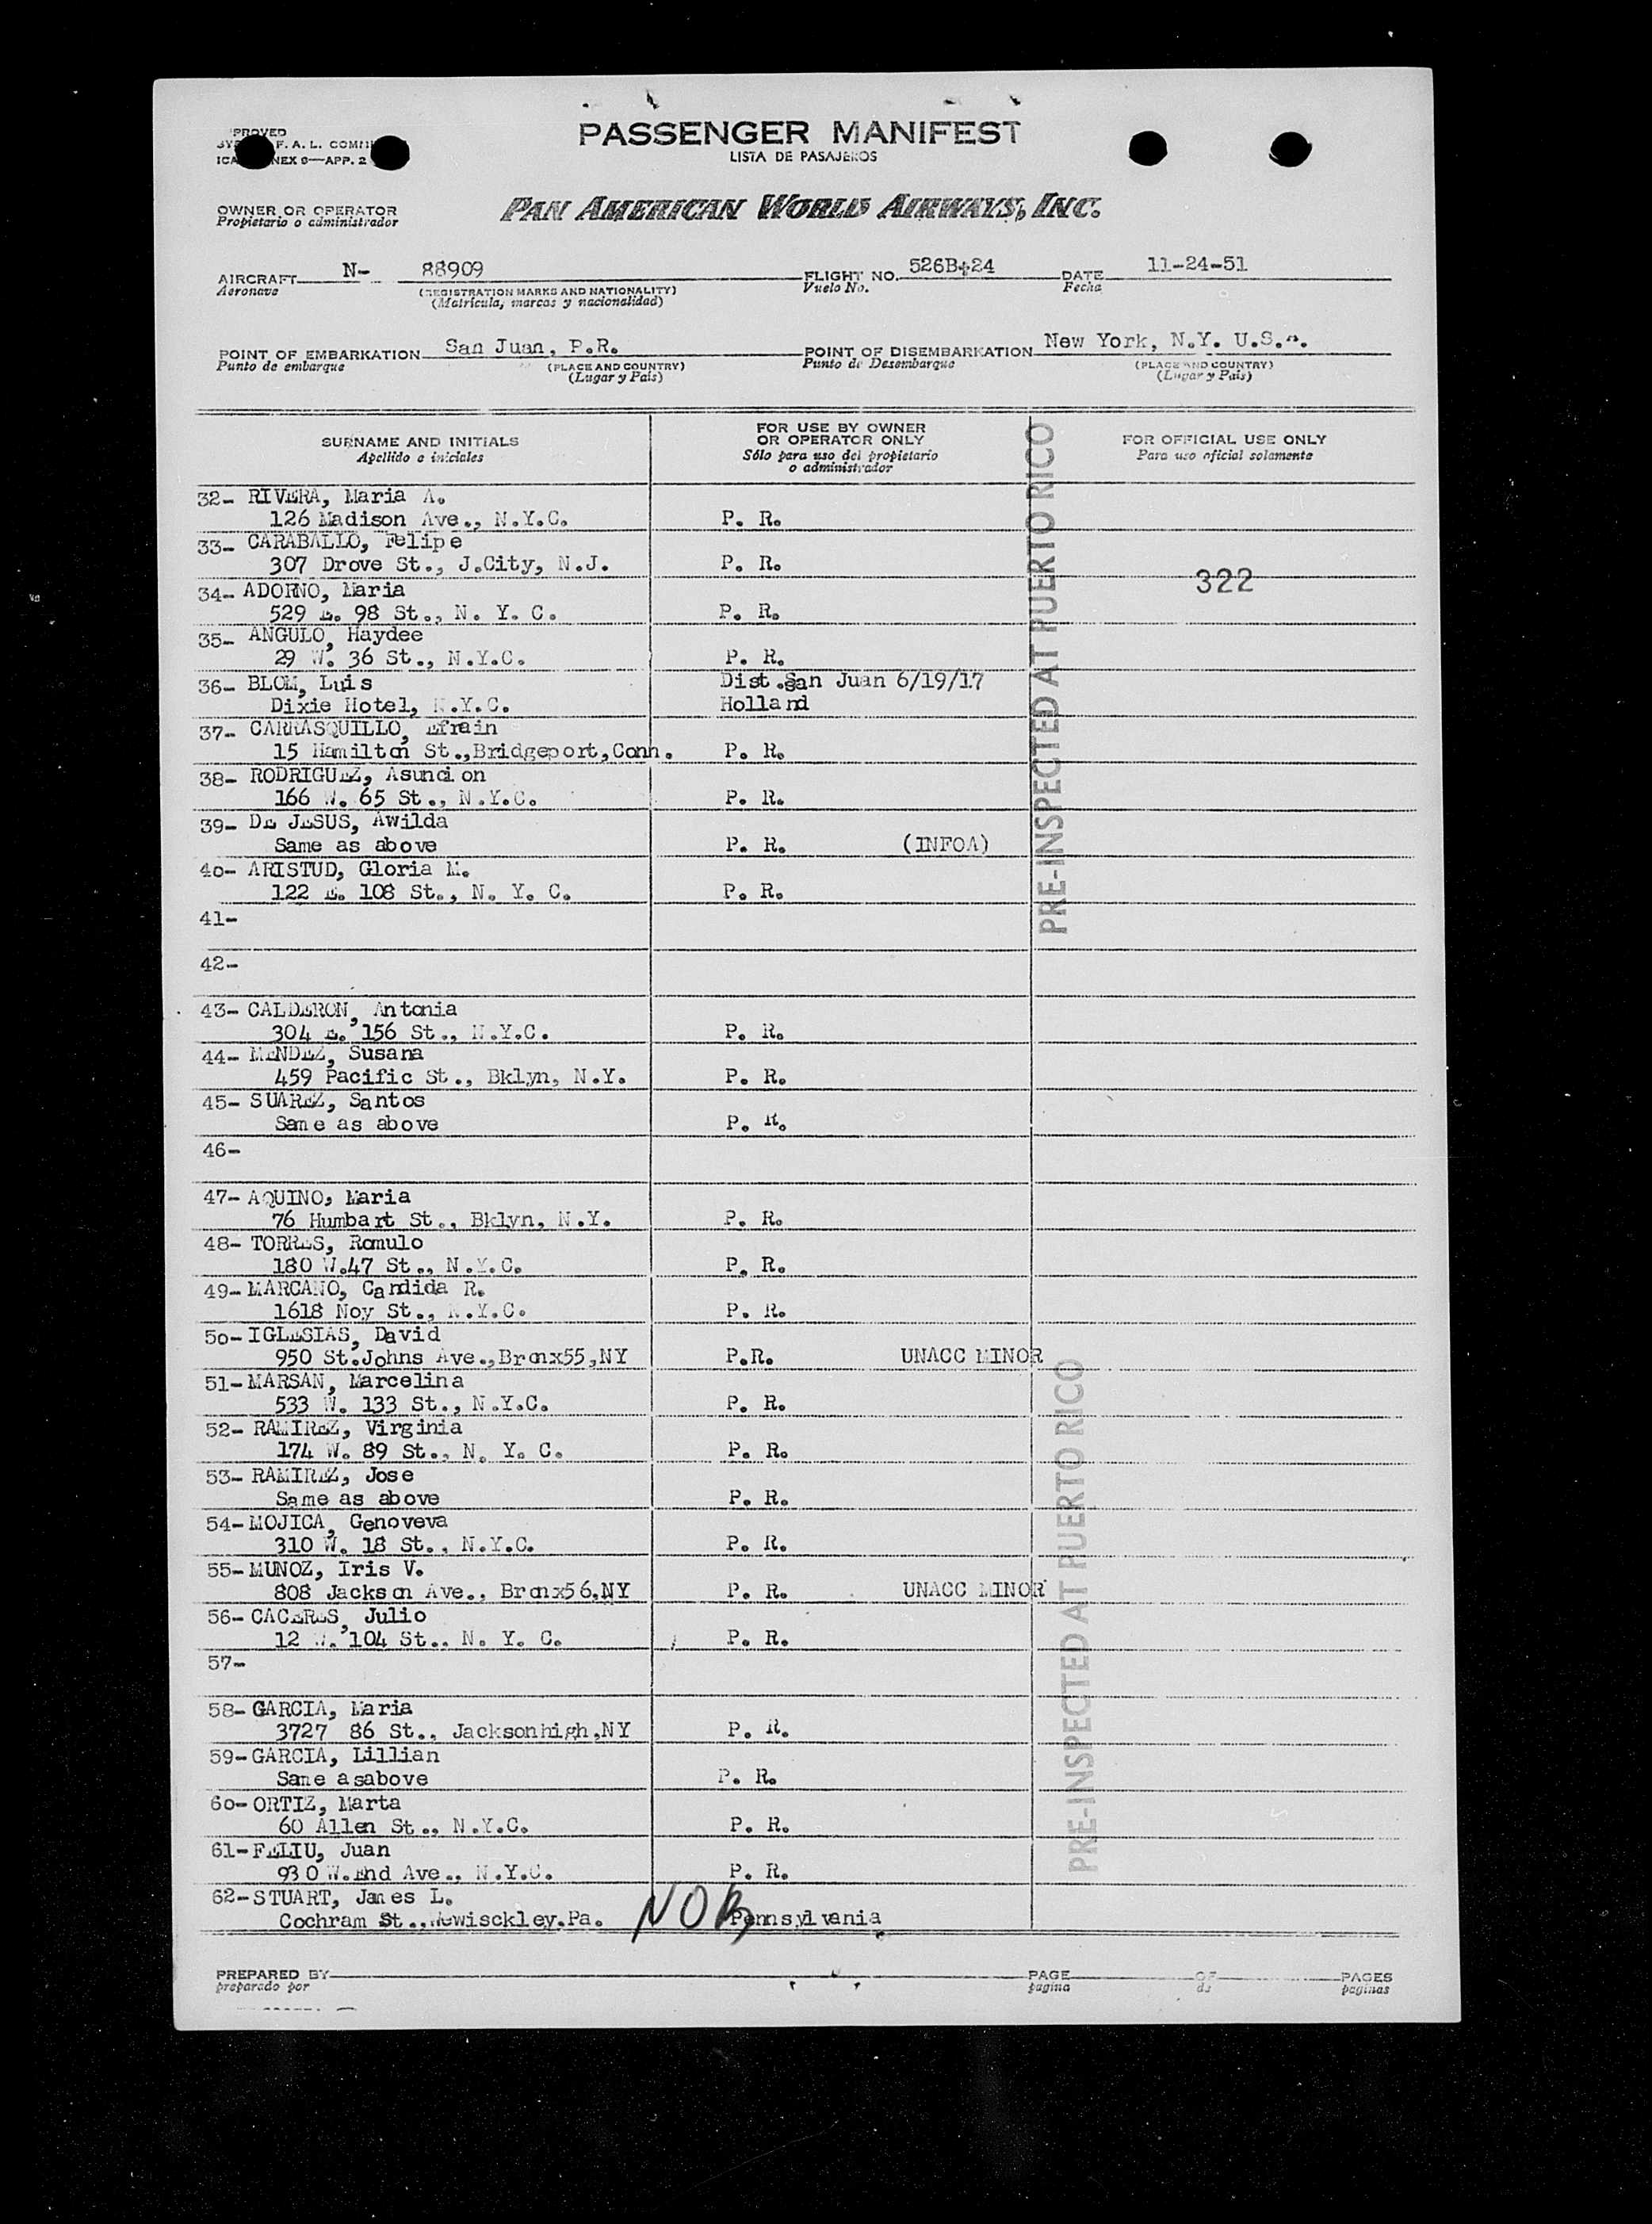 PROVED
F. A. L. COMMI
ICA NEX 9—APP. 2
PASSENGER MANIFEST
LISTA DE PASAJEROS
OWNER OR OPERATOR
Propietario o administrador
PAN AMERICAN WORLD AIRWAYS, INC.
AIRCRAFT N- 88909 FLIGHT NO. 526B+24 DATE 11-24-51
Aeronave (REGISTRATION MARKS AND NATIONALITY) Vuelo No. Fecha
(Matrícula, marcas y nacionalidad)
POINT OF EMBARKATION San Juan, P.R. POINT OF DISEMBARKATION New York, N.Y. U.S.A.
Punto de embarque (PLACE AND COUNTRY) Punto de Desembarque (PLACE AND COUNTRY)
(Lugar y País) (Lugar y País)
SURNAME AND INITIALS
Apellido e iniciales
FOR USE BY OWNER
OR OPERATOR ONLY
Sólo para uso del propietario
o administrador
FOR OFFICIAL USE ONLY
Para uso oficial solamente
PRE-INSPECTED AT PUERTO RICO
32- RIVERA, Maria A.
126 Madison Ave., N.Y.C. P. R.
33- CARABALLO, Felipe
307 Drove St., J.City, N.J. P. R.
322
34- ADORNO, Maria
529 E. 98 St., N. Y. C. P. R.
35- ANGULO, Haydee
29 W. 36 St., N.Y.C. P. R.
36- BLOM, Luis Dist.San Juan 6/19/17
Dixie Hotel, N.Y.C. Holland
37- CARRASQUILLO, Efrain
15 Hamilton St.,Bridgeport,Conn. P. R.
38- RODRIGUEZ, Asuncion
166 W. 65 St., N.Y.C. P. R.
39- DE JESUS, Awilda
Same as above P. R. (INFOA)
40- ARISTUD, Gloria M.
122 E. 108 St., N. Y. C. P. R.
41-
42-
43- CALDERON, Antonia
304 E. 156 St., N.Y.C. P. R.
44- MENDEZ, Susana
459 Pacific St., Bklyn, N.Y. P. R.
45- SUAREZ, Santos
Same as above P. R.
46-
47- AQUINO, Maria
76 Humbart St., Bklyn, N.Y. P. R.
48- TORRES, Romulo
180 W.47 St., N.Y.C. P. R.
49- MARCANO, Candida R.
1618 Noy St., N.Y.C. P. R.
50- IGLESIAS, David
950 St.Johns Ave.,Bronx55,NY P.R. UNACC MINOR
51- MARSAN, Marcelina
533 W. 133 St., N.Y.C. P. R.
52- RAMIREZ, Virginia
174 W. 89 St., N. Y. C. P. R.
53- RAMIREZ, Jose
Same as above P. R.
54- MOJICA, Genoveva
310 W. 18 St., N.Y.C. P. R.
55- MUNOZ, Iris V.
808 Jackson Ave., Bronx56,NY P. R. UNACC MINOR
56- CACERES, Julio
12 W. 104 St., N. Y. C. P. R.
57-
58- GARCIA, Maria
3727 86 St., Jacksonhigh,NY P. R.
59- GARCIA, Lillian
Same asabove P. R.
60- ORTIZ, Marta
60 Allen St., N.Y.C. P. R.
61- FELIU, Juan
930 W.End Ave., N.Y.C. P. R.
62- STUART, James L.
Cochram St.,Wewisckley.Pa. NOB Pennsylvania
PRE-INSPECTED AT PUERTO RICO
PREPARED BY PAGE OF PAGES
preparado por pagina de paginas